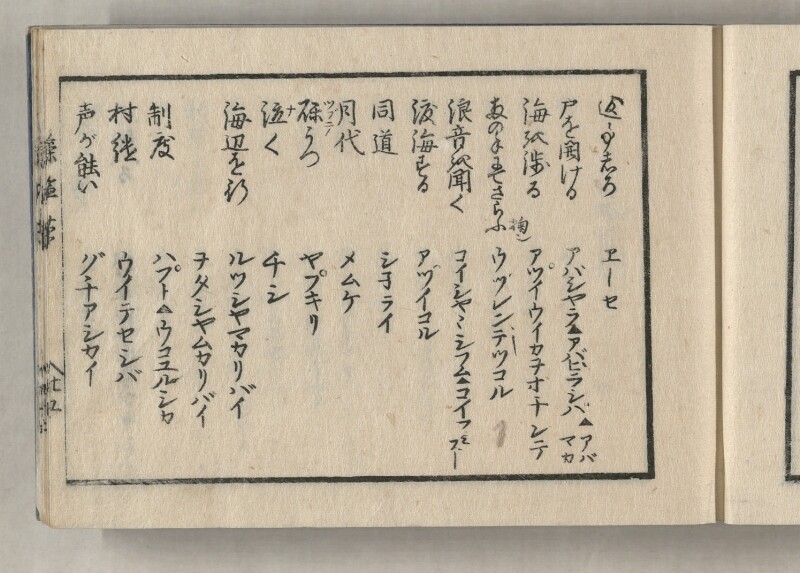 ヱーセ
戸を開ける　アバシヤラ▲アバビラシバ▲アバマカ
海を渉る　アツイウイカチオチシテ
ウヅレンテツコル
浪音を聞く　コイシヤミシフム▲コイフミヌー
渡海する　アヅイコル
同道　シヨライ
月代　メムケ
ツブテ
礫うつ　ヤプキリ
泣く　チシ
ナ
海辺を行　ルツシヤマカリバイ
ヲタシヤムカリバイ
制度　ハプト▲ウコユルシカ
村継　ウイテセシバ
声が能い　ハチアシカイ